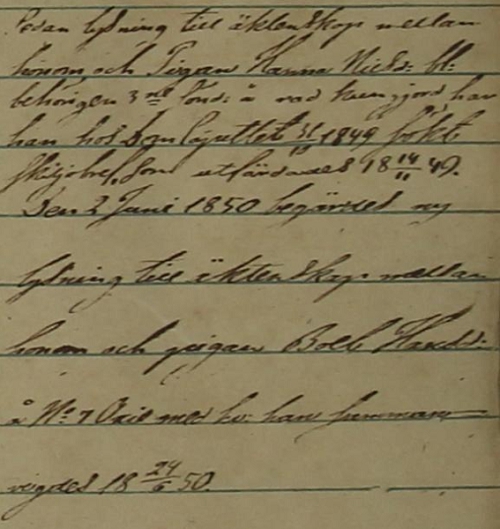 Sedan lysning till äktenskap mellan
honom och Pigan Hanna Nilsd: bl:
behörigen 3ne Sönd: å rad kungjord har
han hos Domcapitlet 31/10 1849 sökt
skiljobref, som utfärdades 18 14/11 49.
Den 2 Juni 1850 begärdes ny
lysning till äktenskap mellan
honom och pigan Boel Haralds:
å No 7 Oxie med hv: han sammans
vigdes 18 24/6 50.